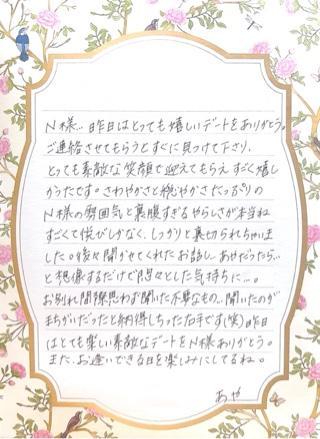 N様…昨日はとっても嬉しいデートをありがとう。
ご連絡させてもらうとすぐに見つけて下さり、
とっても素敵な笑顔で迎えてもらえすごく嬉し
かったです。さわやかさと穏やかさたっぷりの
N様の雰囲気と裏腹すぎるやらしさが本当ね
すごくて悦びしかなく、しっかりと裏切られちゃいま
した。後々聞かせてくれたお話し、あやだったら…
と想像するだけで悶々とした気持ちに…。
お別れ間際思わず聞いた不要なもの…聞いたのが
まちがいだったと納得しちゃった右手です(笑)昨日
はとても楽しい素敵なデートをN様ありがとう。
また、お逢いできる日を楽しみにしてるね。
あや